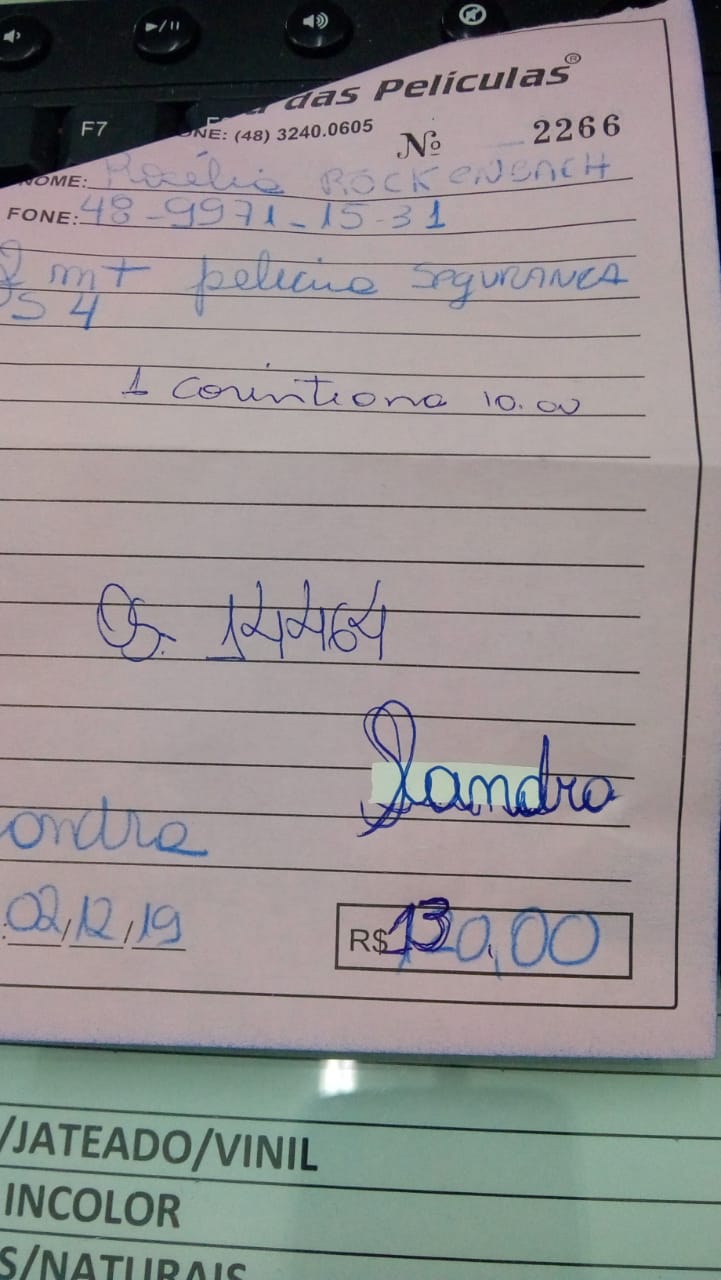 F7
das Películas®
NE: (48) 3240.0605 Nº 2266
NOME: ROCKENBACH
FONE: 48-9971-15-31
2 mt pelicula SEGURANCA
PS 4
1 Corintiano 10.00
OS. 14464
Sandra
ondra
02/12/19
R$ 130,00
/JATEADO/VINIL
INCOLOR
S/NATURAIS